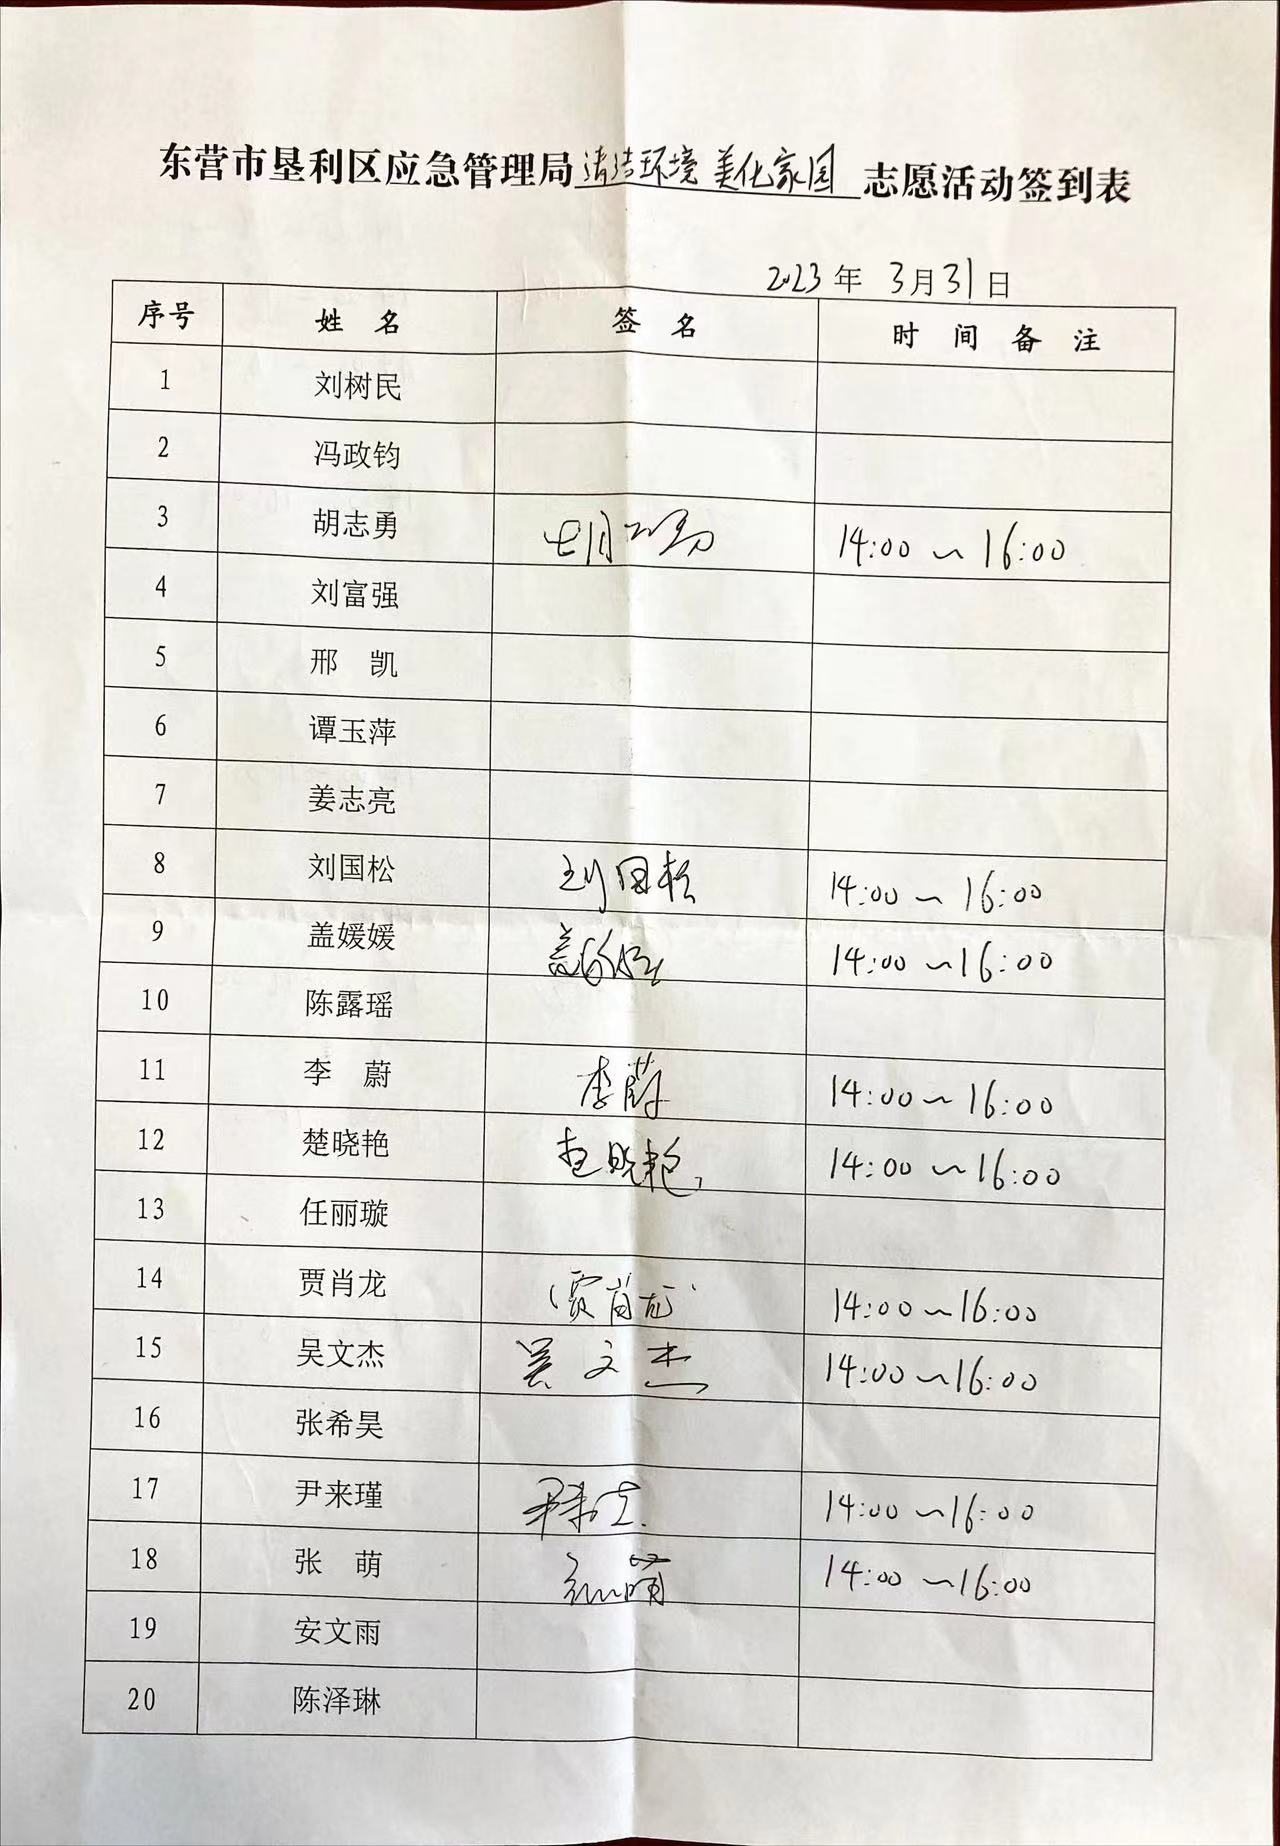 东营市垦利区应急管理局清洁环境 美化家园志愿活动签到表
2023年 3月31日
序号 姓 名 签 名 时 间 备 注
1 刘树民
2 冯政钧
3 胡志勇 胡志勇 14:00 ~ 16:00
4 刘富强
5 邢 凯
6 谭玉萍
7 姜志亮
8 刘国松 刘国松 14:00 ~ 16:00
9 盖媛媛 盖媛媛 14:00 ~ 16:00
10 陈露瑶
11 李 蔚 李蔚 14:00 ~ 16:00
12 楚晓艳 楚晓艳 14:00 ~ 16:00
13 任丽璇
14 贾肖龙 贾肖龙 14:00 ~ 16:00
15 吴文杰 吴文杰 14:00 ~ 16:00
16 张希昊
17 尹来瑾 尹来瑾 14:00 ~ 16:00
18 张 萌 张萌 14:00 ~ 16:00
19 安文雨
20 陈泽琳